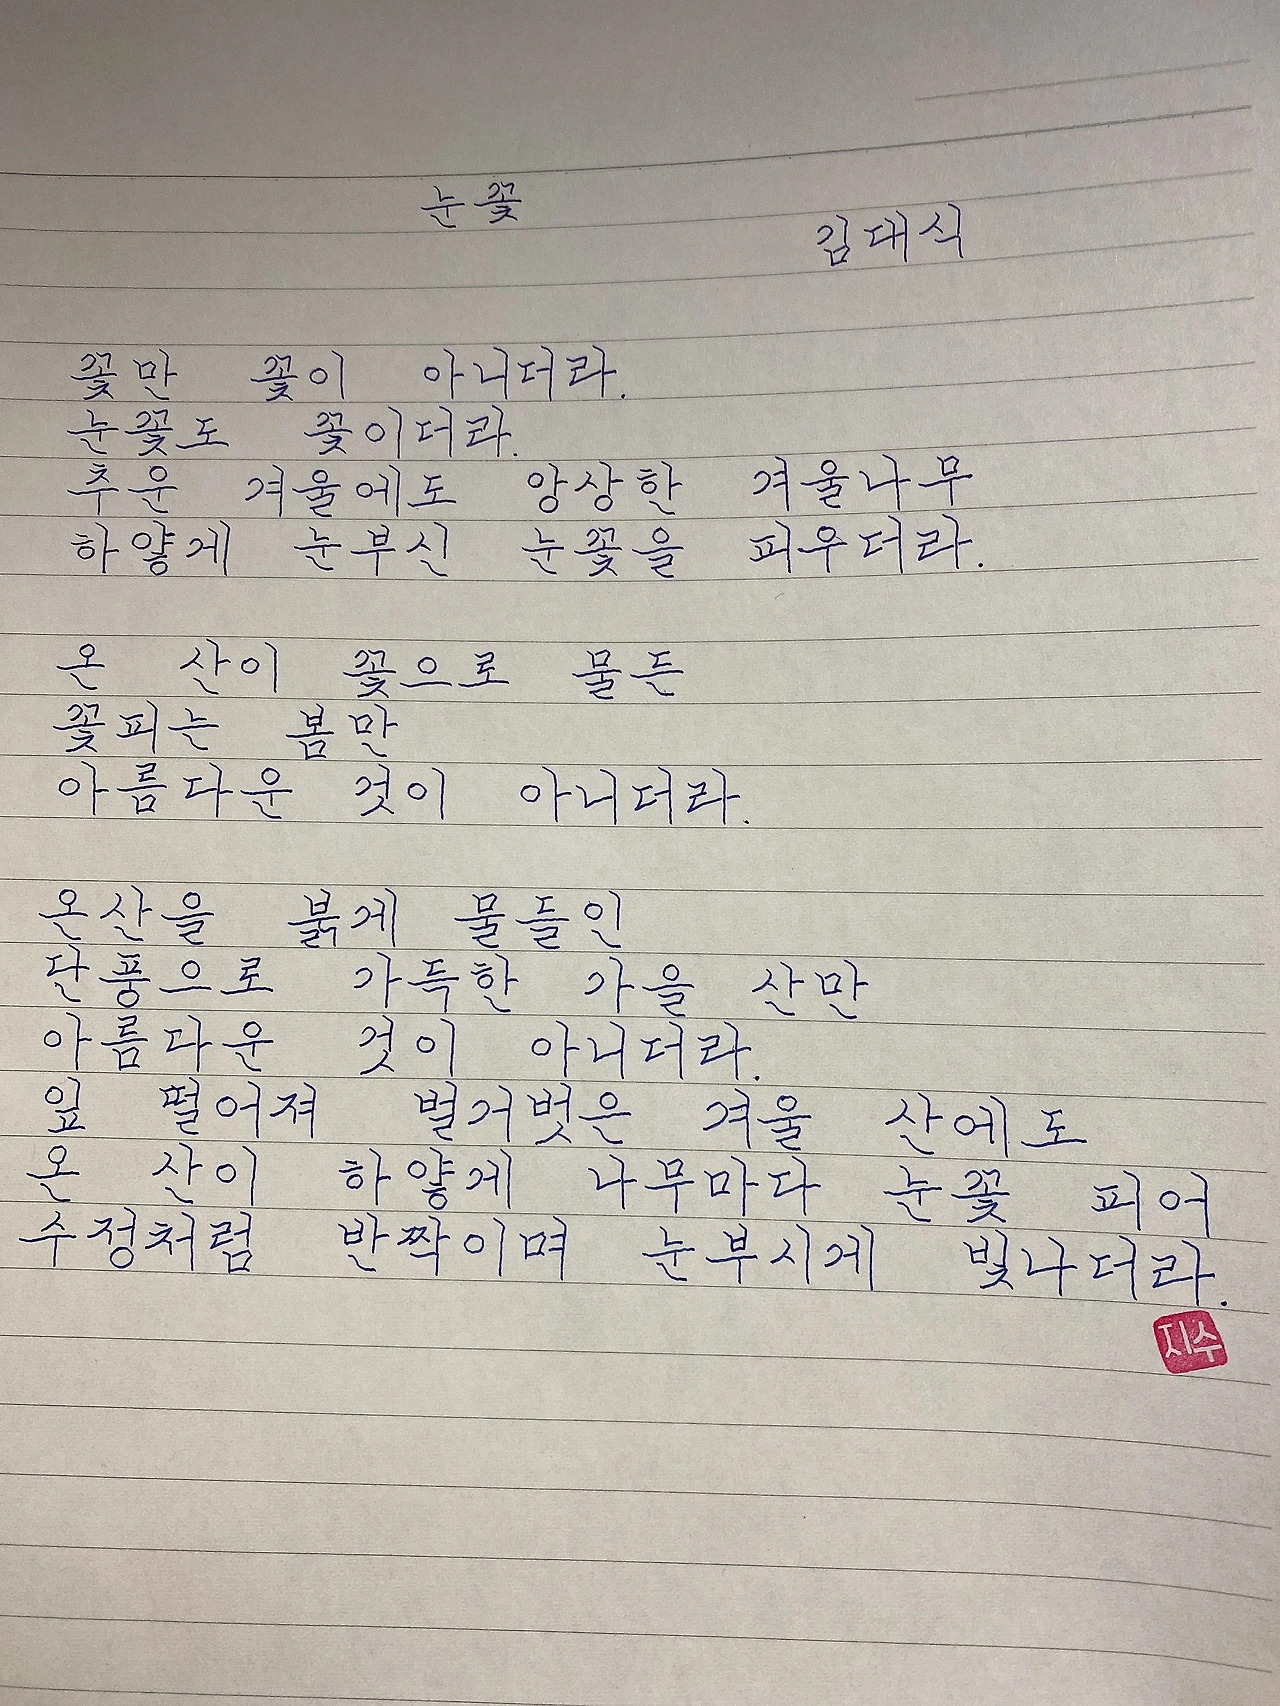 눈꽃
김대식
꽃만 꽃이 아니더라.
눈꽃도 꽃이더라.
추운 겨울에도 앙상한 겨울나무
하얗게 눈부신 눈꽃을 피우더라.
온 산이 꽃으로 물든
꽃피는 봄만
아름다운 것이 아니더라.
온산을 붉게 물들인
단풍으로 가득한 가을 산만
아름다운 것이 아니더라.
잎 떨어져 벌거벗은 겨울 산에도
온 산이 하얗게 나무마다 눈꽃 피어
수정처럼 반짝이며 눈부시게 빛나더라.
지수